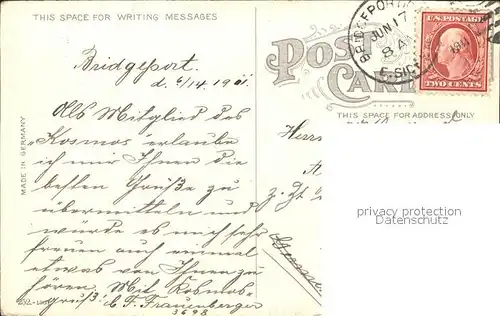 THIS SPACE FOR WRITING MESSAGES
Bridgeport.
d. 6/14. 1911.
Als Mitglied des
"Kosmos" erlaube
ich mir Ihnen die
besten Grüße zu
übermitteln und
würde es mich sehr
freuen auch einmal
etwas von Ihnen zu
hören. Mit Kosmos-
gruß! F. Frauenberger
3698
MADE IN GERMANY
POST CARD
THIS SPACE FOR ADDRESS ONLY
BRIDGEPORT
JUN 17
8 A
E. SIDE
1911
U.S. POSTAGE
TWO CENTS
Herrn
z. Zt
privacy protection
Datenschutz